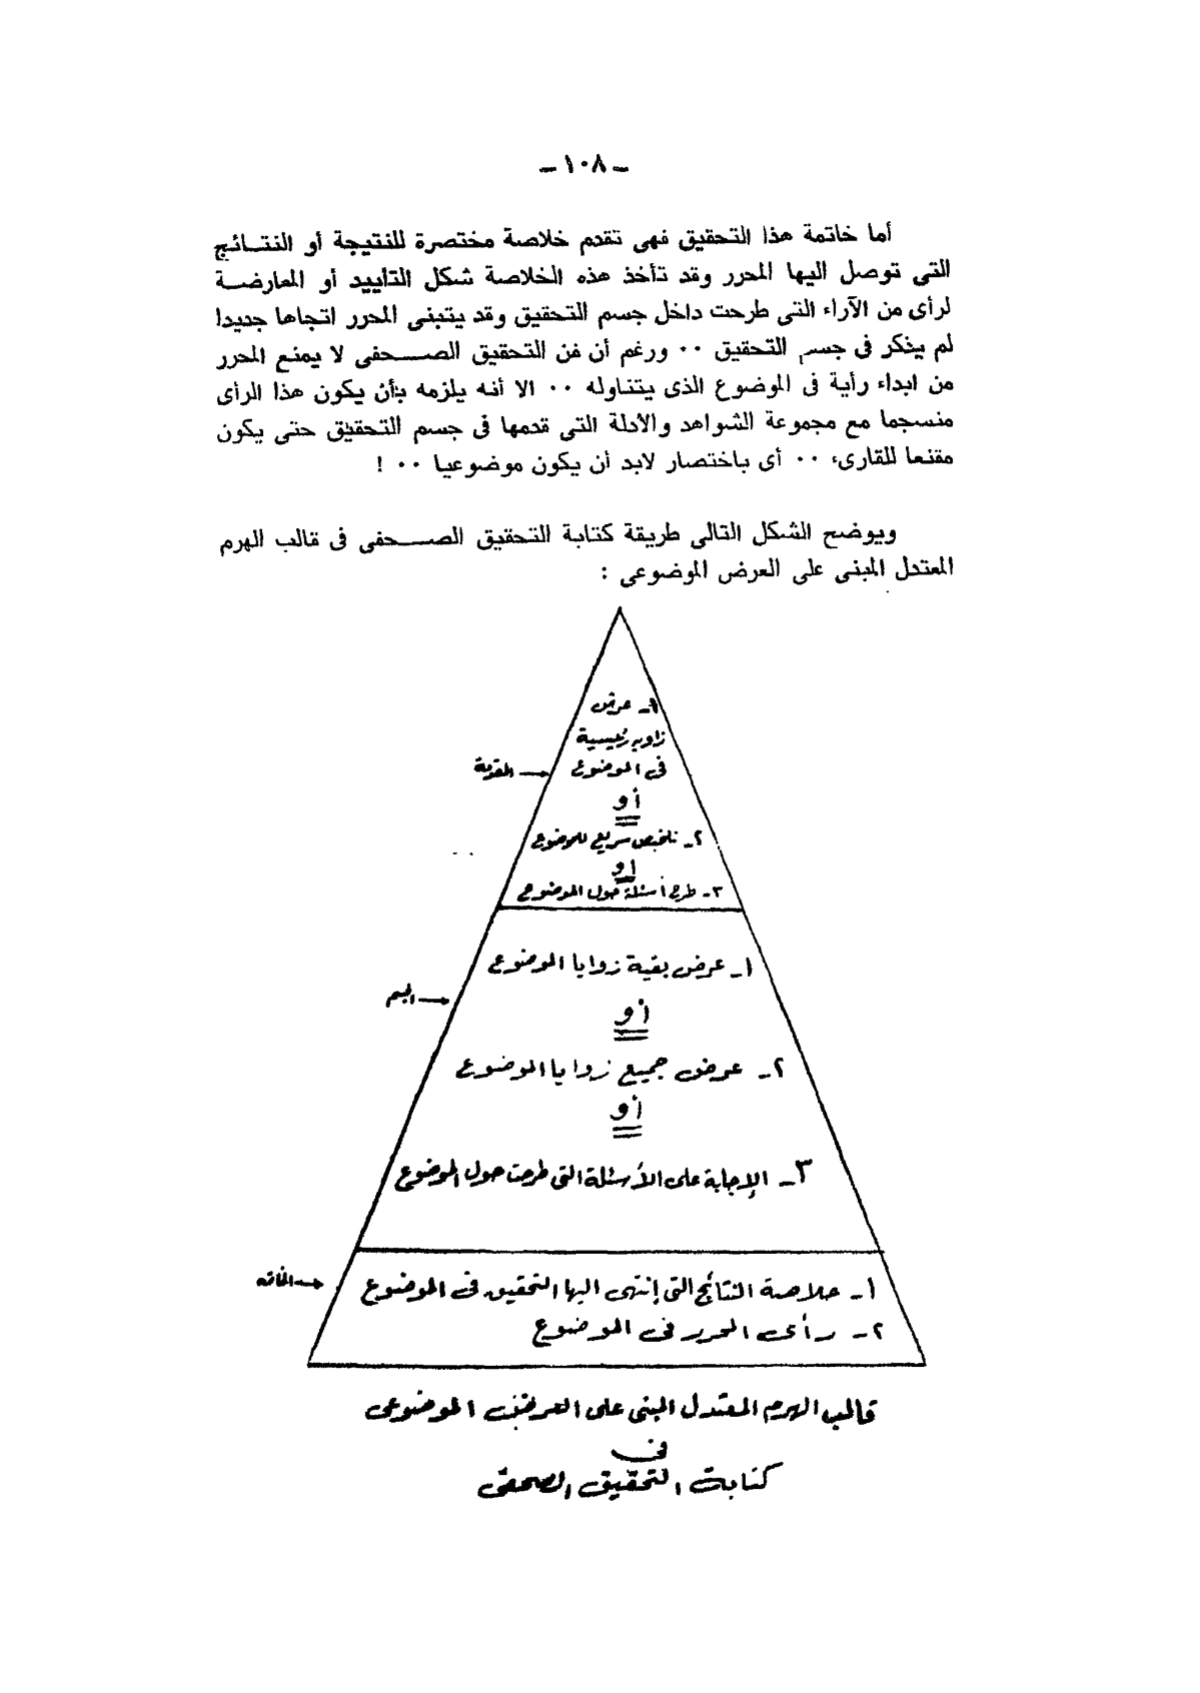 ـ ١٠٨ ـ
أما خاتمة هذا التحقيق فهى تقدم خلاصة مختصرة للنتيجة أو النتـائج
التى توصل اليها المحرر وقد تأخذ هذه الخلاصة شكل التأييد أو المعارضـة
لرأى من الآراء التى طرحت داخل جسم التحقيق وقد يتبنى المحرر اتجاها جديدا
لم يذكر فى جسم التحقيق ٠٠ ورغم أن فن التحقيق الصـحفى لا يمنع المحرر
من ابداء رأية فى الموضوع الذى يتناوله ٠٠ الا أنه يلزمه بأن يكون هذا الرأى
منسجما مع مجموعة الشواهد والأدلة التى قدمها فى جسم التحقيق حتى يكون
مقنعا للقارىء ٠٠ أى باختصار لابد أن يكون موضوعيا ٠٠ !
ويوضح الشكل التالى طريقة كتابة التحقيق الصـحفى فى قالب الهرم
المعتدل المبنى على العرض الموضوعى :
١ـ عرض
زاوية رئيسية
فى الموضوع
المقدمة
أو
٢ـ تلخيص سريع للموضوع
أو
٣ـ طرح أسئلة حول الموضوع
١ـ عرض بقية زوايا الموضوع
الجسم
أو
٢ـ عرض جميع زوايا الموضوع
أو
٣ـ الإجابة على الأسئلة التى طرحت حول الموضوع
الخاتمه
١ـ خلاصة النتائج التى إنتهى اليها التحقيق فى الموضوع
٢ـ رأى المحرر فى الموضوع
قالب الهرم المعتدل المبنى على العرض الموضوعى
فى
كتابة التحقيق الصحفى